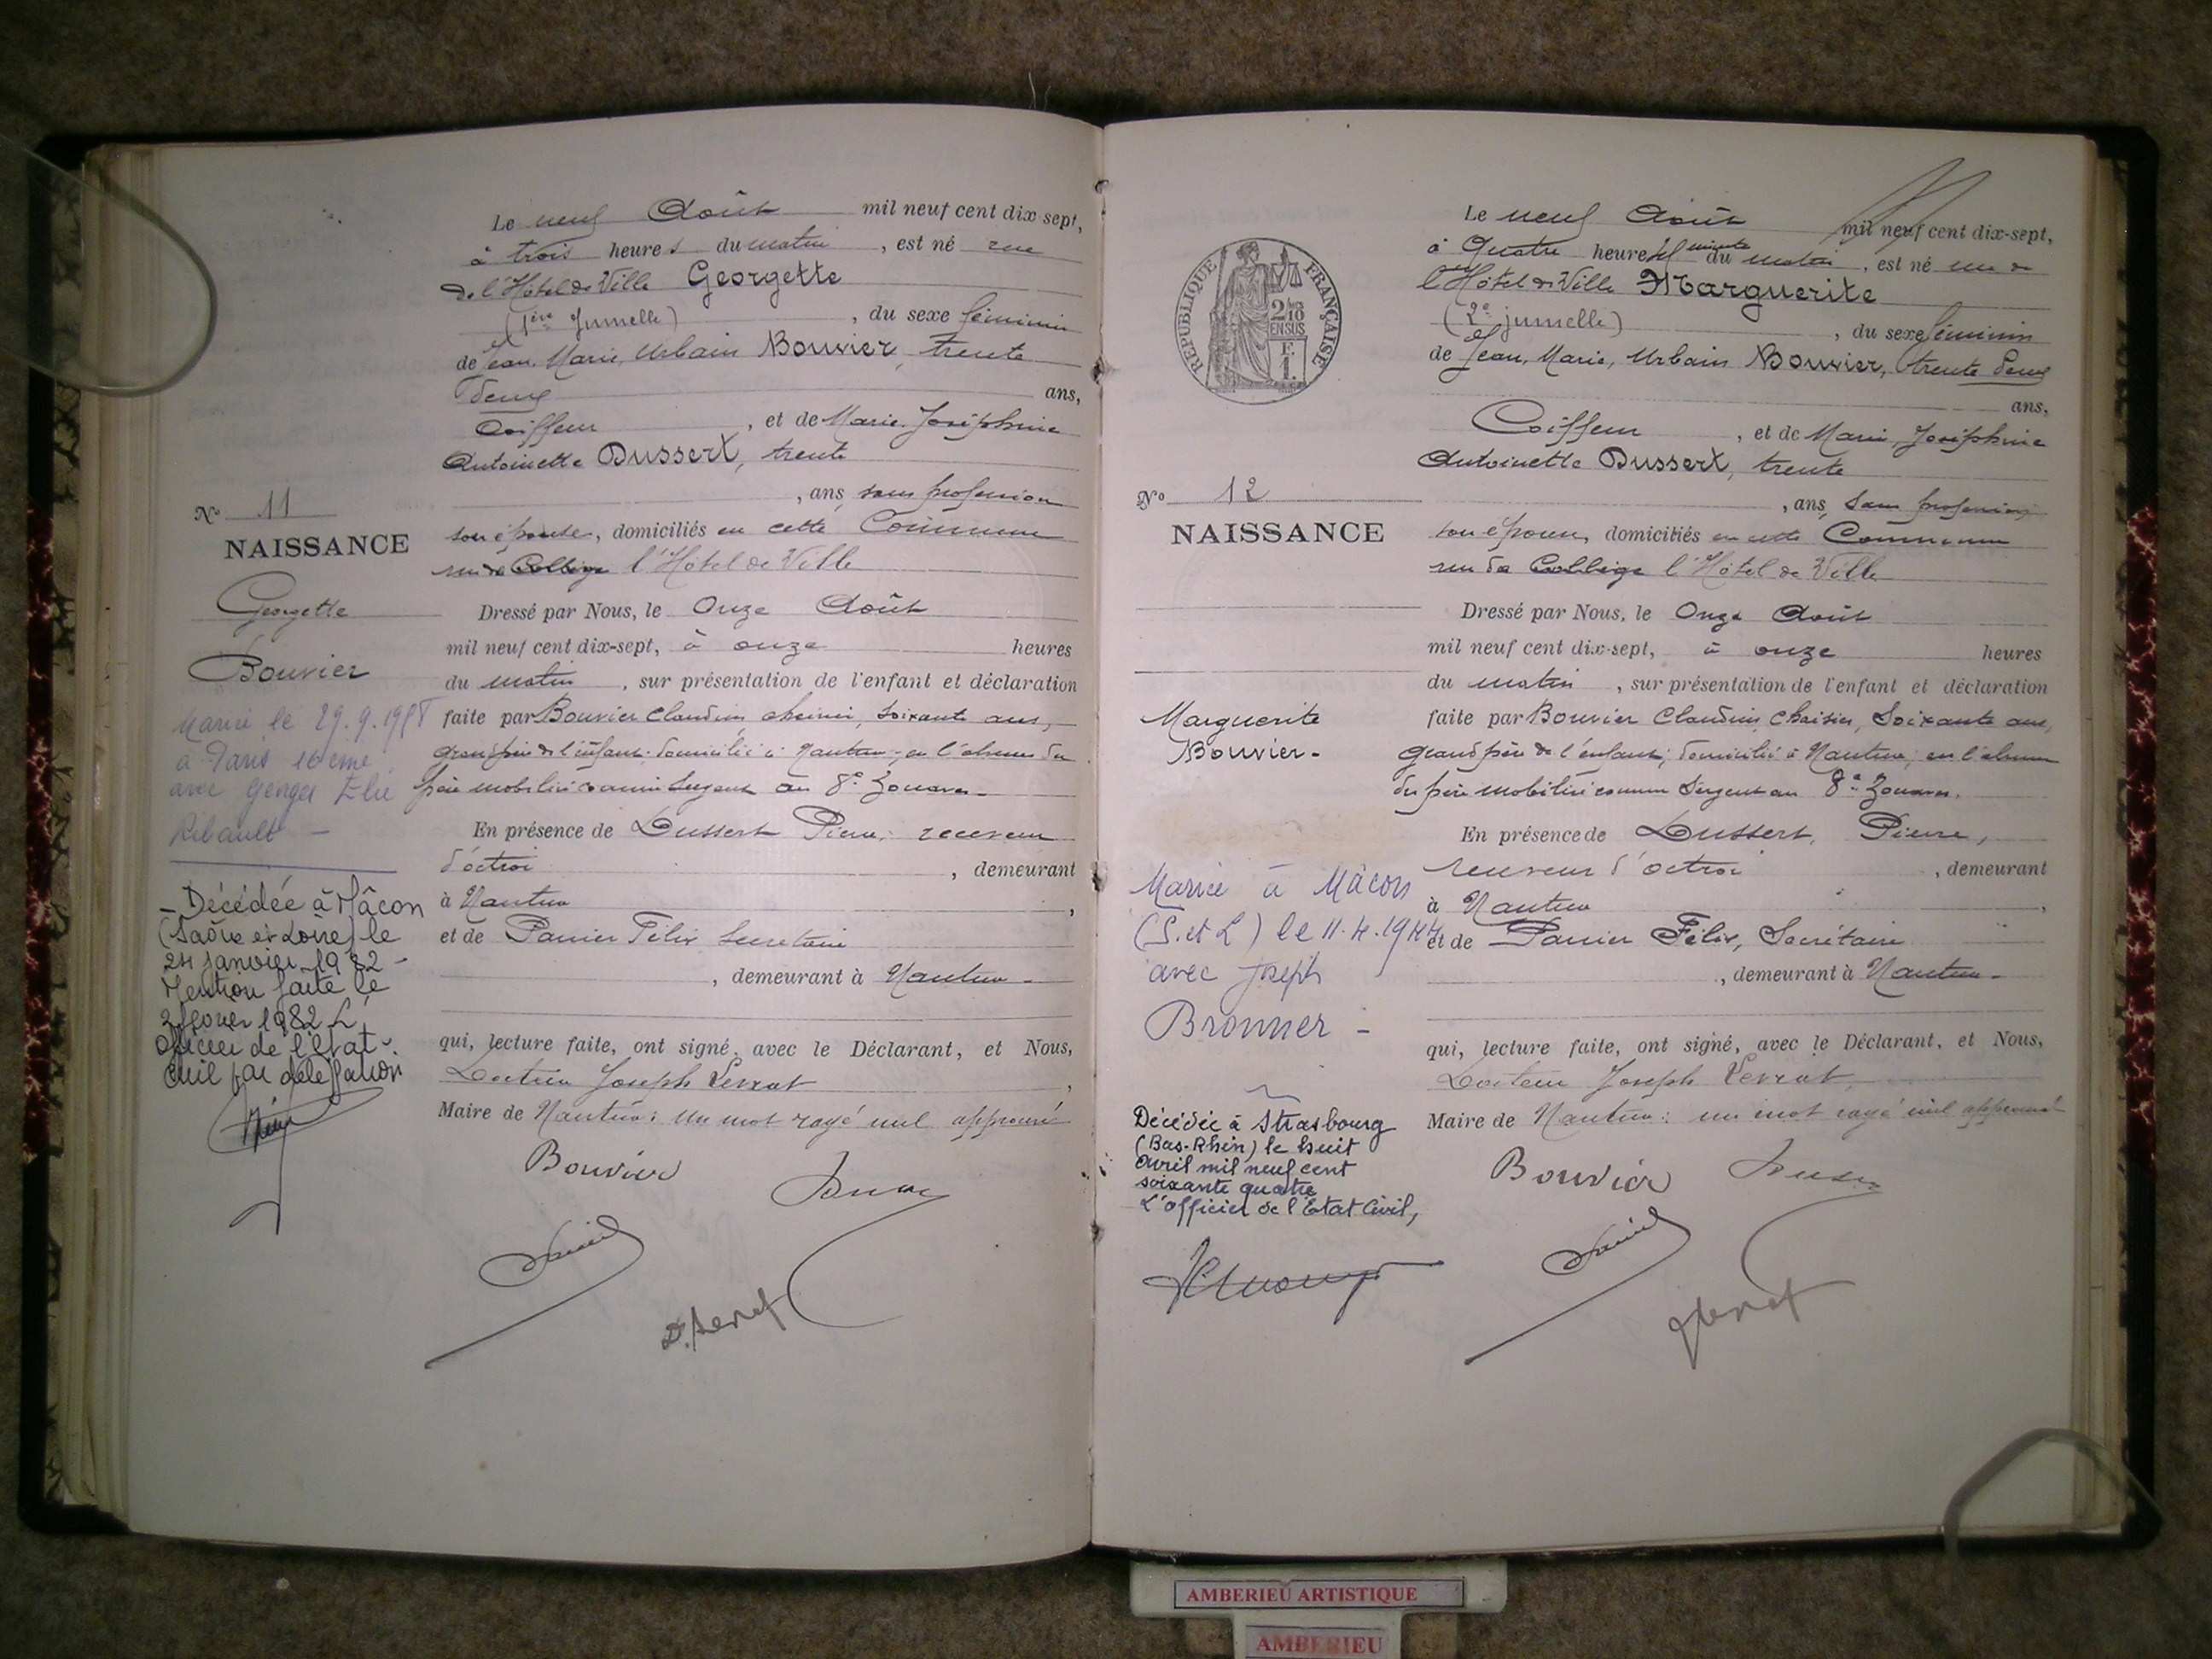 Le neuf Août mil neuf cent dix sept,
à trois heures du matin, est né rue
de l'Hôtel de Ville Georgette
(1ère Jumelle), du sexe féminin
de Jean, Marie, Urbain Bouvier, trente
deux ans,
Coiffeur, et de Marie Joséphine
Antoinette Dussert, trente
, ans, sans profession
son épouse, domiciliés en cette Commune
rue de Collège l'Hôtel de Ville
Dressé par Nous, le Onze Août
mil neuf cent dix-sept, à onze heures
du matin, sur présentation de l'enfant et déclaration
faite par Bouvier Claudius, soixante ans,
grand père de l'enfant domicilié à Nantua, en l'absence du
père mobilisé comme Sergent au 8e Zouaves.
En présence de Dussert Pierre, receveur
d'octroi, demeurant
à Nantua,
et de Panier Félix Secrétaire
, demeurant à Nantua.
qui, lecture faite, ont signé, avec le Déclarant, et Nous,
Docteur Joseph Levrat,
Maire de Nantua: un mot rayé nul approuvé
Bouvier
No 11
NAISSANCE
Georgette
Bouvier
Mariée le 29.9.19
à Paris
avec Georges Elie
Ribault
Décédée à Mâcon
(Saône et Loire) le
24 janvier 1982
Mention faite le
2 février 1982 L'
Officier de l'état
civil par délégation
REPUBLIQUE FRANÇAISE
2/10
EN SUS
F.
1.
No 12
NAISSANCE
Marguerite
Bouvier.
Mariée à Mâcon
(S. et L) le 11.4.1944
avec Joseph
Bronner
Décédée à Strasbourg
(Bas-Rhin) le huit
avril mil neuf cent
soixante quatre
L'officier de l'Etat Civil,
Le neuf Août mil neuf cent dix-sept,
à Quatre heures minute du matin, est né rue de
l'Hôtel de Ville Marguerite
(2e jumelle), du sexe féminin
de Jean, Marie, Urbain Bouvier, trente deux
ans,
Coiffeur, et de Marie, Joséphine
Antoinette Dussert, trente
, ans, sans profession
son épouse, domiciliés en cette Commune
rue du Collège l'Hôtel de Ville
Dressé par Nous, le Onze Août
mil neuf cent dix-sept, à onze heures
du matin, sur présentation de l'enfant et déclaration
faite par Bouvier Claudius, Soixante ans,
grand père de l'enfant, domicilié à Nantua, en l'absence
du père mobilisé comme Sergent au 8e Zouaves.
En présence de Dussert, Pierre,
receveur d'octroi, demeurant
à Nantua,
et de Panier Félix, Secrétaire
, demeurant à Nantua.
qui, lecture faite, ont signé, avec le Déclarant, et Nous,
Docteur Joseph Levrat,
Maire de Nantua: un mot rayé nul approuvé
Bouvier
AMBERIEU ARTISTIQUE
AMBERIEU